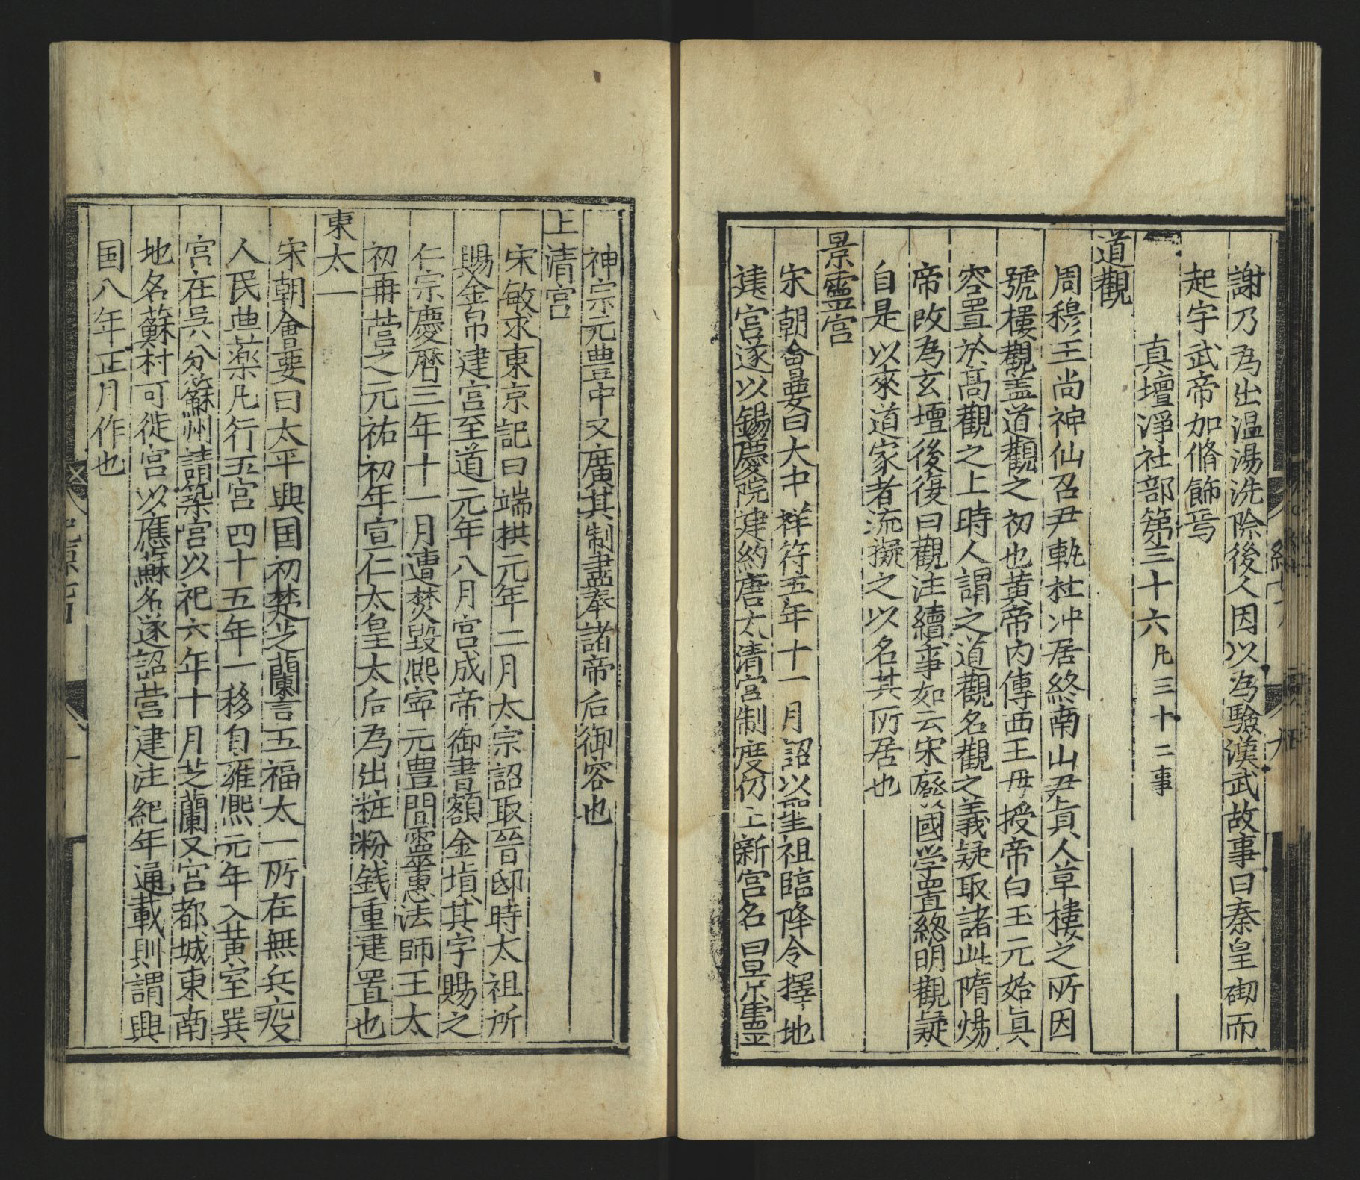 謝乃為出温湯洗除後人因以為驗漢武故事曰秦皇砌而
起宇武帝加脩飾焉
真壇淨社部第三十六凡三十二事
道觀
周穆王尚神仙召尹軌杜冲居終南山尹真人草樓之所因
號樓觀盖道觀之初也黄帝内傳西王母授帝白玉元始真
容置於高觀之上時人謂之道觀名觀之義疑取諸此隋煬
帝改為玄壇後復曰觀注續事如云宋廢國学置緫明觀疑
自是以來道家者流擬之以名其所居也
景靈宫
宋朝會要曰大中祥符五年十一月詔以聖祖臨降令擇地
建宫遂以錫慶院建約唐太清宫制度仍上新宫名曰景靈
神宗元豊中又廣其制盡奉諸帝后御容也
上清宫
宋敏求東京記曰端拱元年二月太宗詔取晉邸時太祖所
賜金帛建宫至道元年八月宫成帝御書額金填其字賜之
仁宗慶曆三年十一月遭焚毀熈寜元豊間靈惠法師王太
初再营之元祐初年宣仁太皇太后為出粧粉錢重建置也
東太一
宋朝會要曰太平興国初楚芝蘭言五福太一所在無兵疫
人民豊樂凡行五宫四十五年一移自雍熈元年入黄室巽
宫在吳分蘇州請築宫以祀六年十月芝蘭又宫都城東南
地名蘇村可徙宫以應蘇名遂詔营建注紀年通載則謂興
国八年正月作也